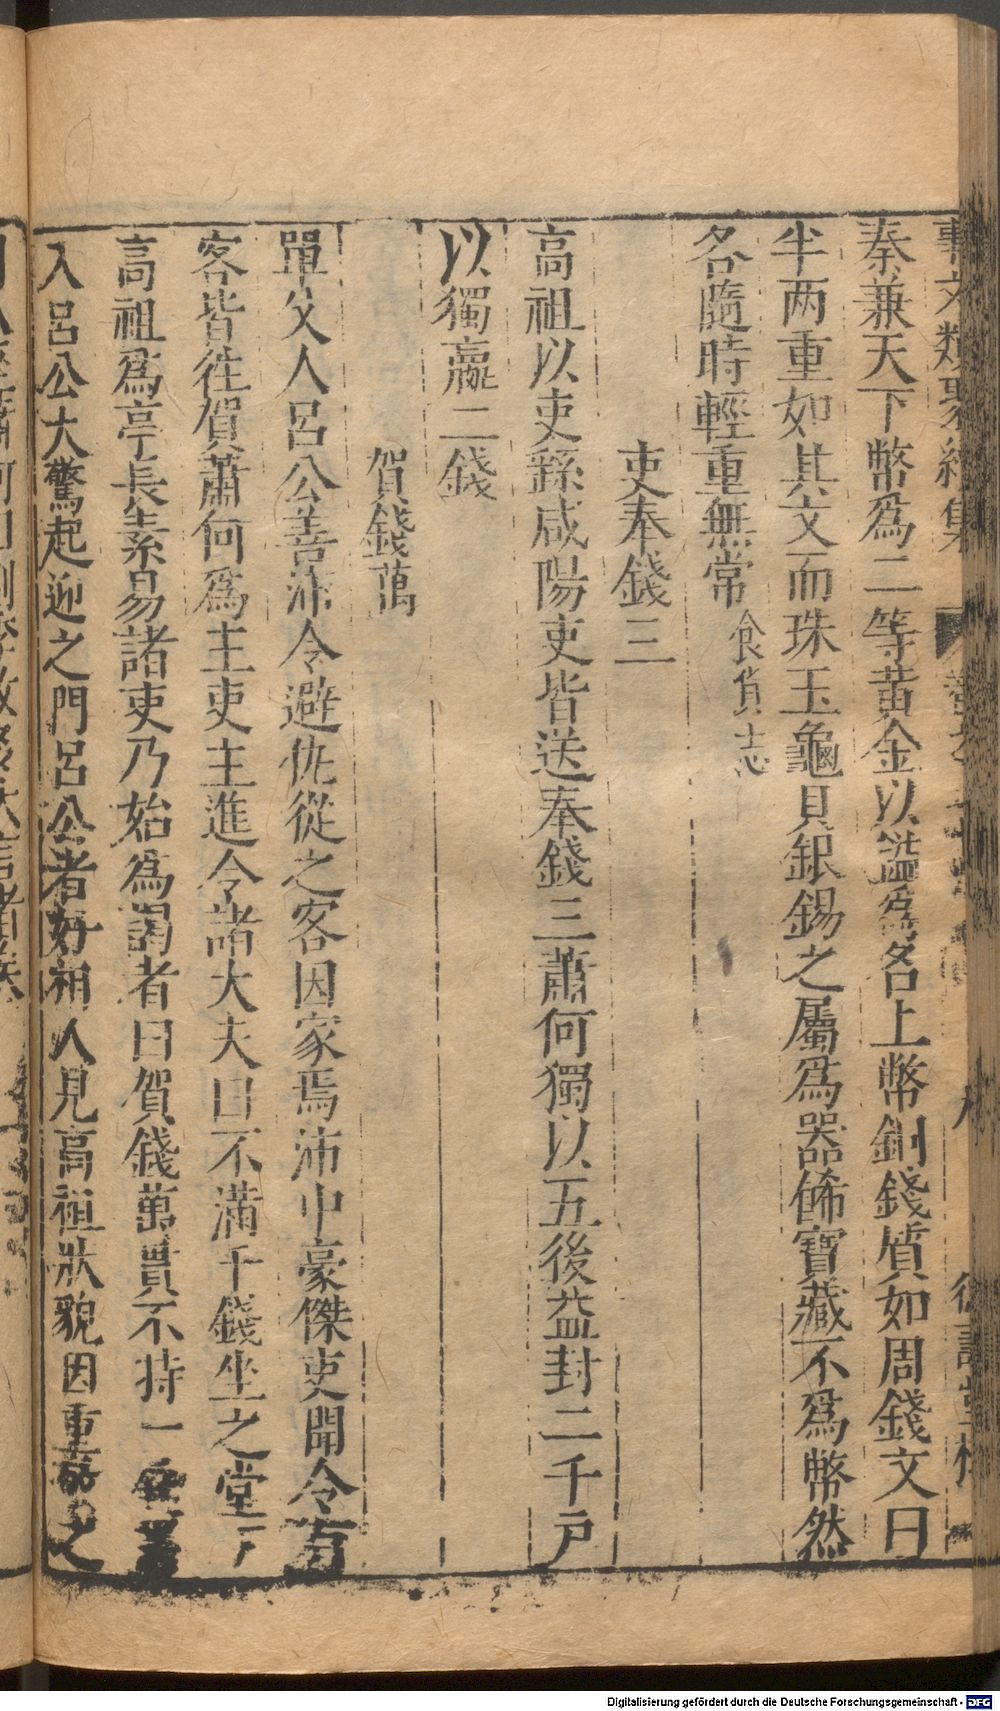 事文類聚續集
秦兼天下幣為二等黃金以溢為名上幣銅錢質如周錢文曰
半两重如其文而珠玉龜貝銀錫之屬為器餙寶藏不為幣然
各隨時輕重無常食貨志
吏奉錢三
高祖以吏繇咸陽吏皆送奉錢三蕭何獨以五後益封二千戶
以獨贏二錢
賀錢萬
單父人呂公善沛令避仇從之客因家焉沛中豪傑吏聞令有
客皆徃賀蕭何為主吏主進令諸大夫曰不滿千錢坐之堂下
高祖為亭長素易諸吏乃始為謁者曰賀錢萬實不持一
入呂公大驚起迎之門呂公者好相人見高祖狀貌因重之
Digitalisierung gefördert durch die Deutsche Forschungsgemeinschaft - DFG